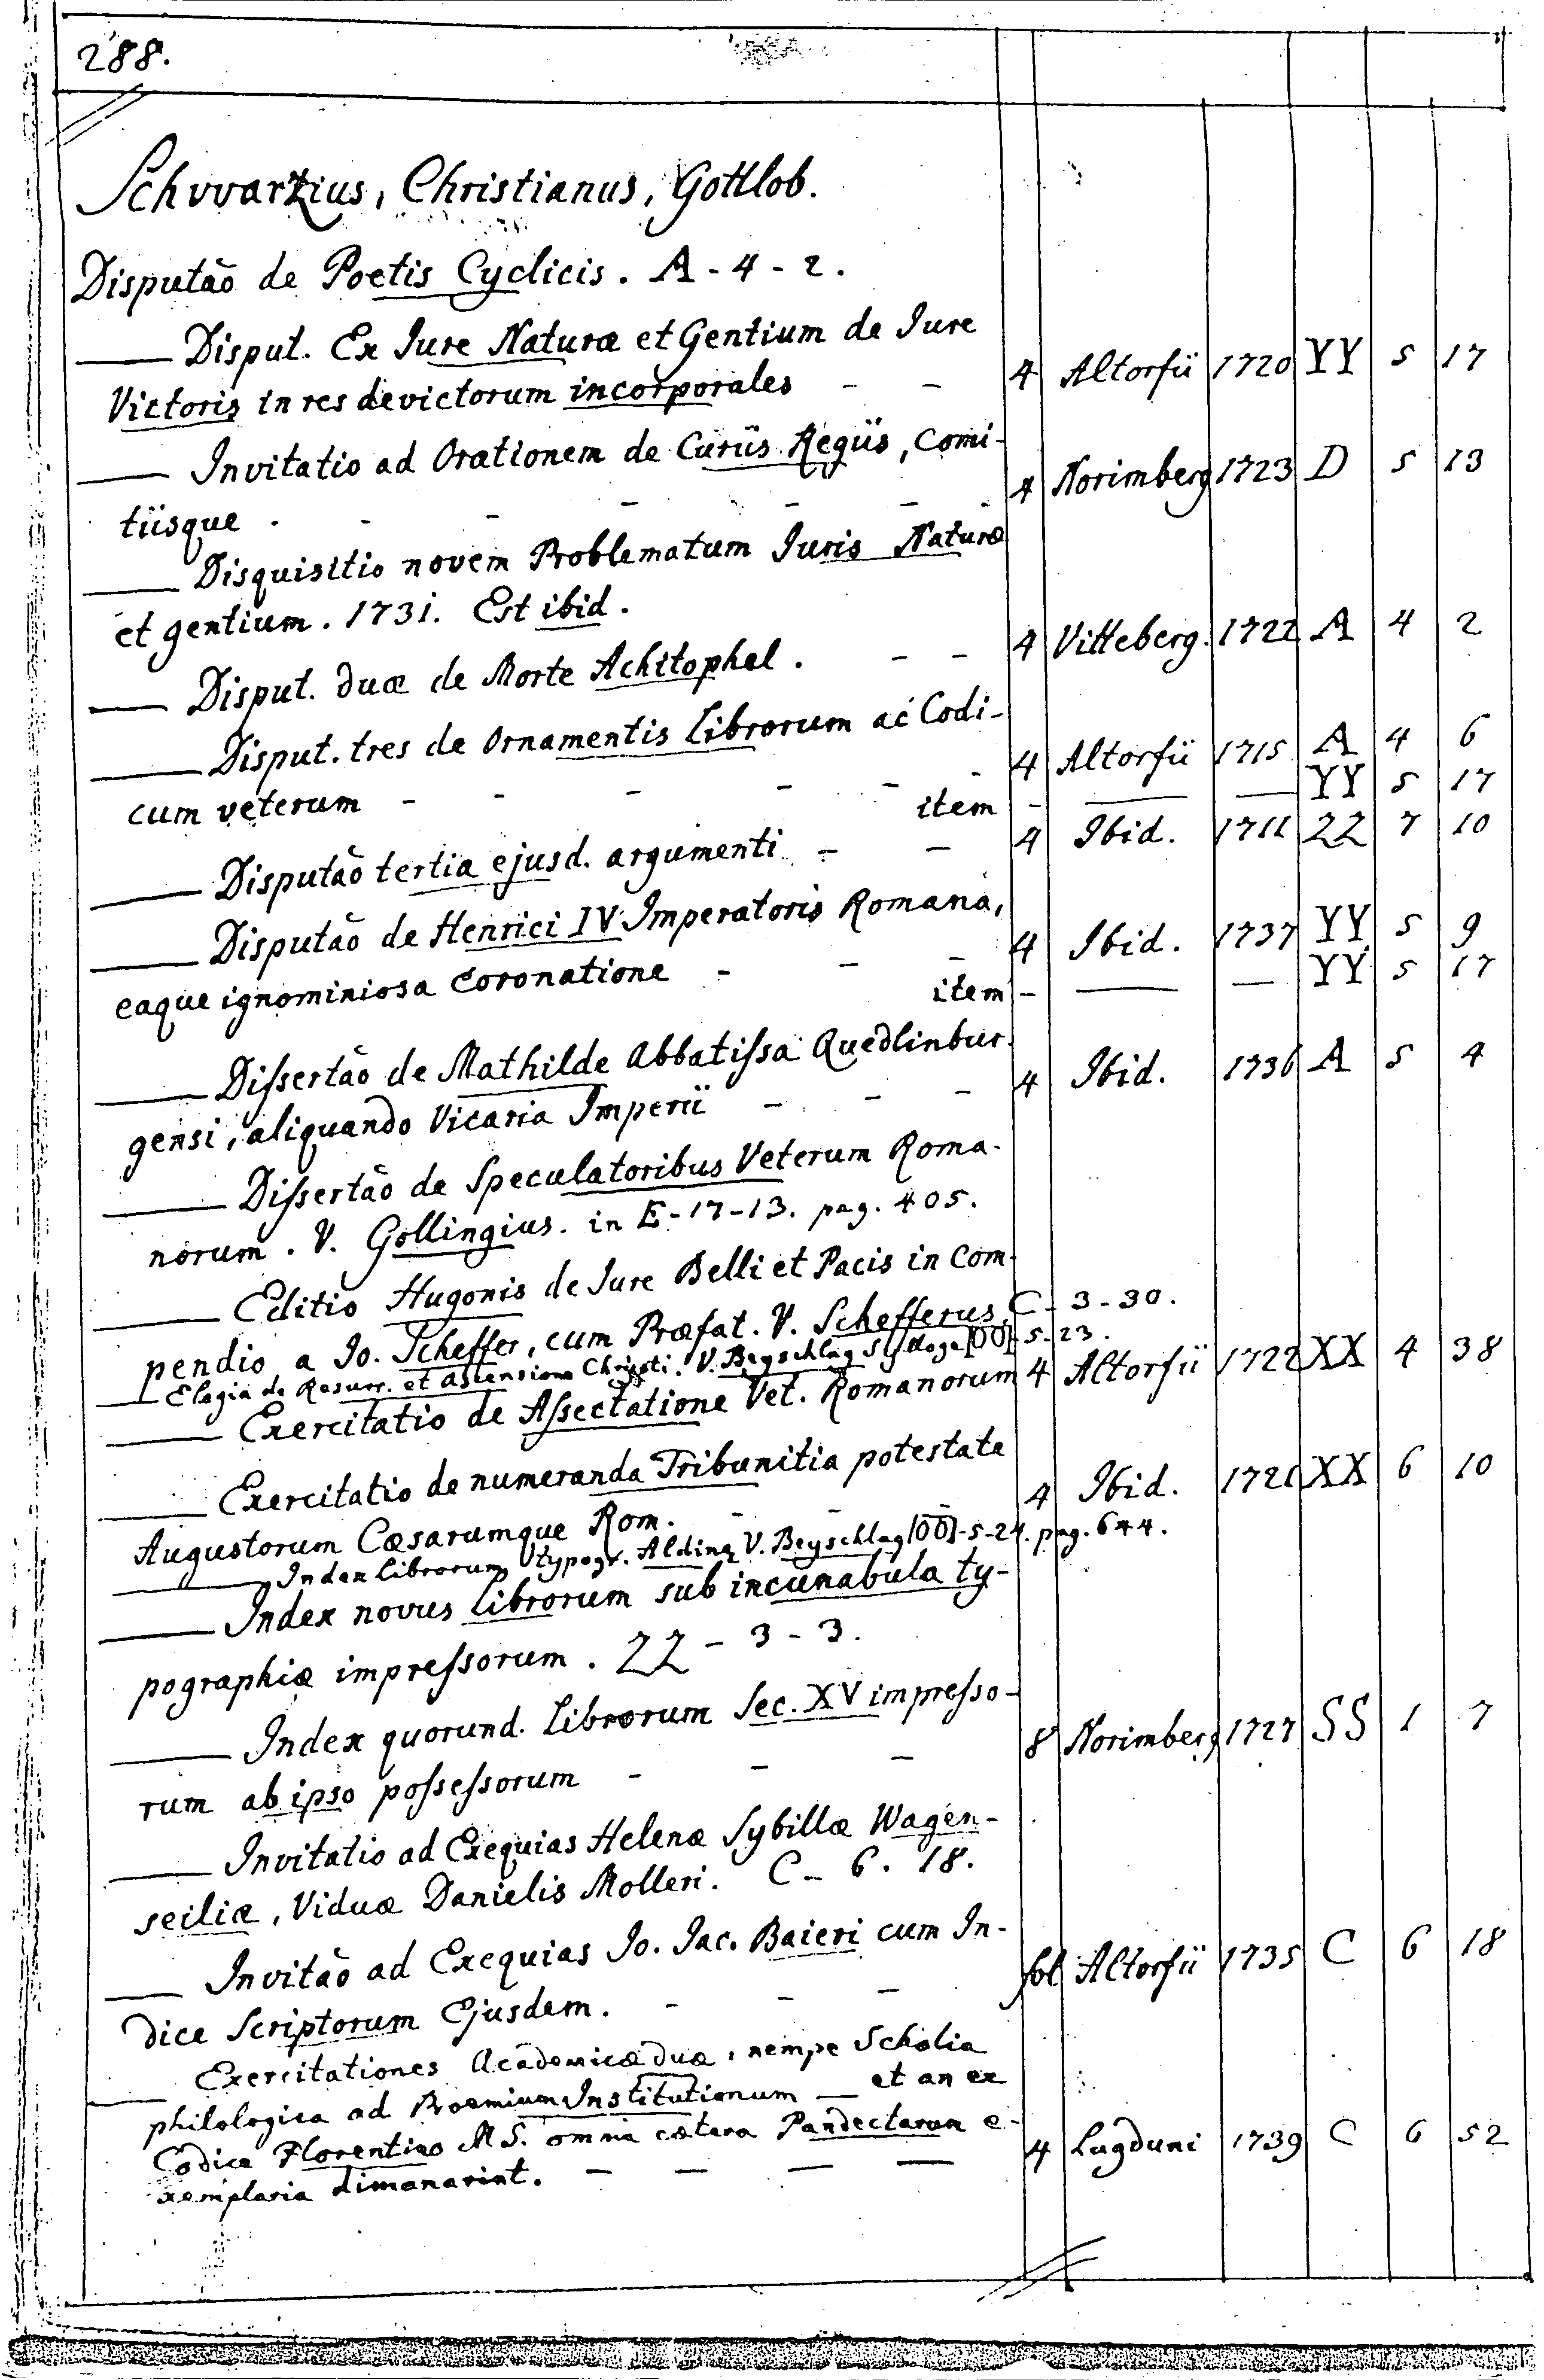 288.
Schvvarzius, Christianus, Gottlob.
Disputão de Poetis Cyclicis. A - 4 - 2.
—— Disput. Ex Jure Naturæ et Gentium de Jure
Victoris in res devictorum incorporales - - 4 Altorfii 1720 YY 5 17
—— Invitatio ad Orationem de Curiis Regiis, Comi-
tiisque - - - - - - 4 Norimberg 1723 D 5 13
—— Disquisitio novem Problematum Juris Naturæ
et gentium. 1731. Est ibid.
—— Disput. duæ de Morte Achitophel. - - 4 Vitteberg. 1722 A 4 2
—— Disput. tres de Ornamentis Librorum ac Codi-
cum veterum - - - - - - 4 Altorfii 1715 A 4 6
item - —— —— YY 5 17
—— Disputão tertia ejusd. argumenti - - 4 Ibid. 1711 ZZ 7 10
—— Disputão de Henrici IV Imperatoris Romana,
eaque ignominiosa coronatione - - - 4 Ibid. 1737 YY 5 9
item - —— — YY 5 17
—— Dissertão de Mathilde Abbatissa Quedlinbur-
gensi, aliquando Vicaria Imperii - - - 4 Ibid. 1736 A 5 4
—— Dissertão de Speculatoribus Veterum Roma-
norum. V. Gollingius. in E-17-13. pag. 405.
—— Editio Hugonis de Jure Belli et Pacis in Com-
pendio a Jo. Scheffer, cum Præfat. V. Schefferus C - 3 - 30.
—— Elegia de Resurr. et Astensione Christi. V. Beyschlag Sylloge [OO]-5-23.
—— Exercitatio de Assectatione Vet. Romanorum 4 Altorfii 1722 XX 4 38
—— Exercitatio de numeranda Tribunitia potestate
Augustorum Cæsarumque Rom. - - - 4 Ibid. 1721 XX 6 10
—— Index librorum typogr. Aldinæ V. Beyschlag [OO]-5-24. pag. 644.
—— Index novus Librorum sub incunabula ty-
pographiæ impressorum. ZZ - 3 - 3.
—— Index quorund. Librorum Sec. XV impresso-
rum ab ipso possessorum - - - 8 Norimberg 1727 SS 1 7
—— Invitatio ad Exequias Helenæ Sybillæ Wagen-
seiliæ, Viduæ Danielis Molleri. C - 6. 18.
—— Invitão ad Exequias Jo. Jac. Baieri cum In-
dice Scriptorum Ejusdem. - - - fol Altorfii 1735 C 6 18
—— Exercitationes Academicæ duæ, nempe Scholia
philologica ad Proemium Institutionum — et an ex
Codice Florentino MS. omnia cætera Pandectarum e-
xemplaria dimanarint. - - - - 4 Lugduni 1739 C 6 52